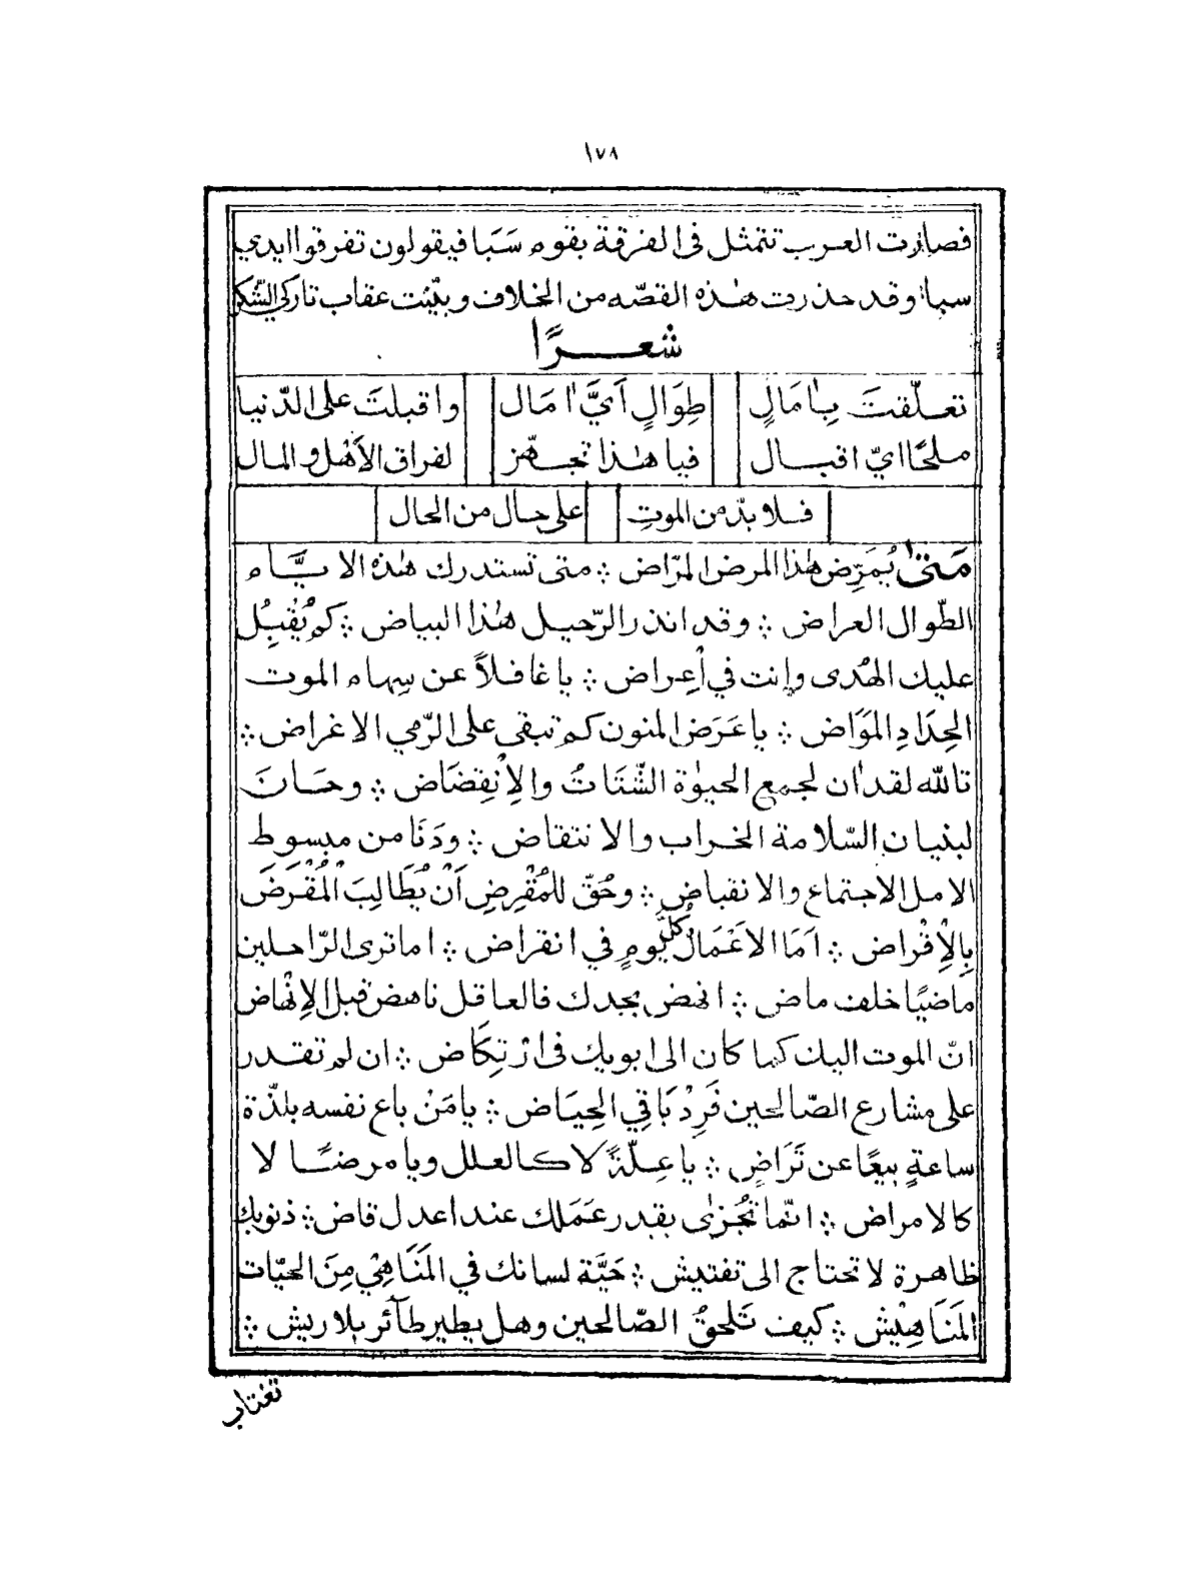 ١٧٨
فصارت العرب تتمثل فى الفرقة بقوم سَبَا فيقولون تفرقوا ايدي
سبا وقد حذرت هٰذه القصّه من الخلاف وبيّنت عقاب تاركي الشّكر
شعرًا
تعلّقتَ بِاٰمَالٍ طِوَالٍ اَيَّ اٰمَال واقبلتَ على الدّنيا
ملحًّا ايّ اقبال فيا هٰذا تجهّز لفراق الأهْل والمال
فلا بدّ من الموتِ على حال من الحال
مَتىٰ يُمَرِّض هٰذا المرض المرّاض ؞ متى تستدرك هٰذه الايَّام
الطّوال العراض ؞ وقد انذر الرّحيل هٰذا البياض ؞ كم يُقْبِل
عليك الهُدى وإنت في اْعِراض ؞ يا غافلاً عن سِهام الموت
الحِدَادِ المَوَاض ؞ يا عَرَض المنون كم تبقى على الرّمي الاغراض ؞
تاللّه لقد اٰن لجمع الحيوٰة الشَّتَاتُ والِاْنقِضَاض ؞ وحَانَ
لبنيان السّلامة الخراب والانتقاض ؞ ودَنَا من مبسوط
الامل الاجتماع والانقباض ؞ وحُقّ للمُقْرِضِ اَنْ يُطَالِبَ الْمُقْرَضَ
بِالْاِقْراض ؞ اَمَا الاَعْمَالُ كُلَّ يومٍ في انقراض ؞ اما ترى الرّاحلين
ماضيًا خلف ماض ؞ انهض بجدك فالعاقل ناهض قبل الاِنْهاض
انّ الموت اليك كما كان الى ابويك فى ارْتِكَاض ؞ ان لم تقدر
على مشارع الصّالحين فَرِدْ بَاقِي الحِيَاض ؞ يا مَنْ باع نفسه بلذّة
ساعةٍ بيعًا عن تَرَاضٍ ؞ يا عِلّةً لا كالعلل ويا مرضًا لا
كالامراض ؞ انّما تُجْزىٰ بقدر عَمَلك عند اعدل قاض ؞ ذنوبك
ظاهرة لا تحتاج الى تفتيش ؞ حَيَّة لسانك في المَنَاهِيْ مِنَ الحيّات
المَنَاهِيْش ؞ كيف تَلحقُ الصّالحين وهل يطير طآئر بلا ريش ؞
تغتاب